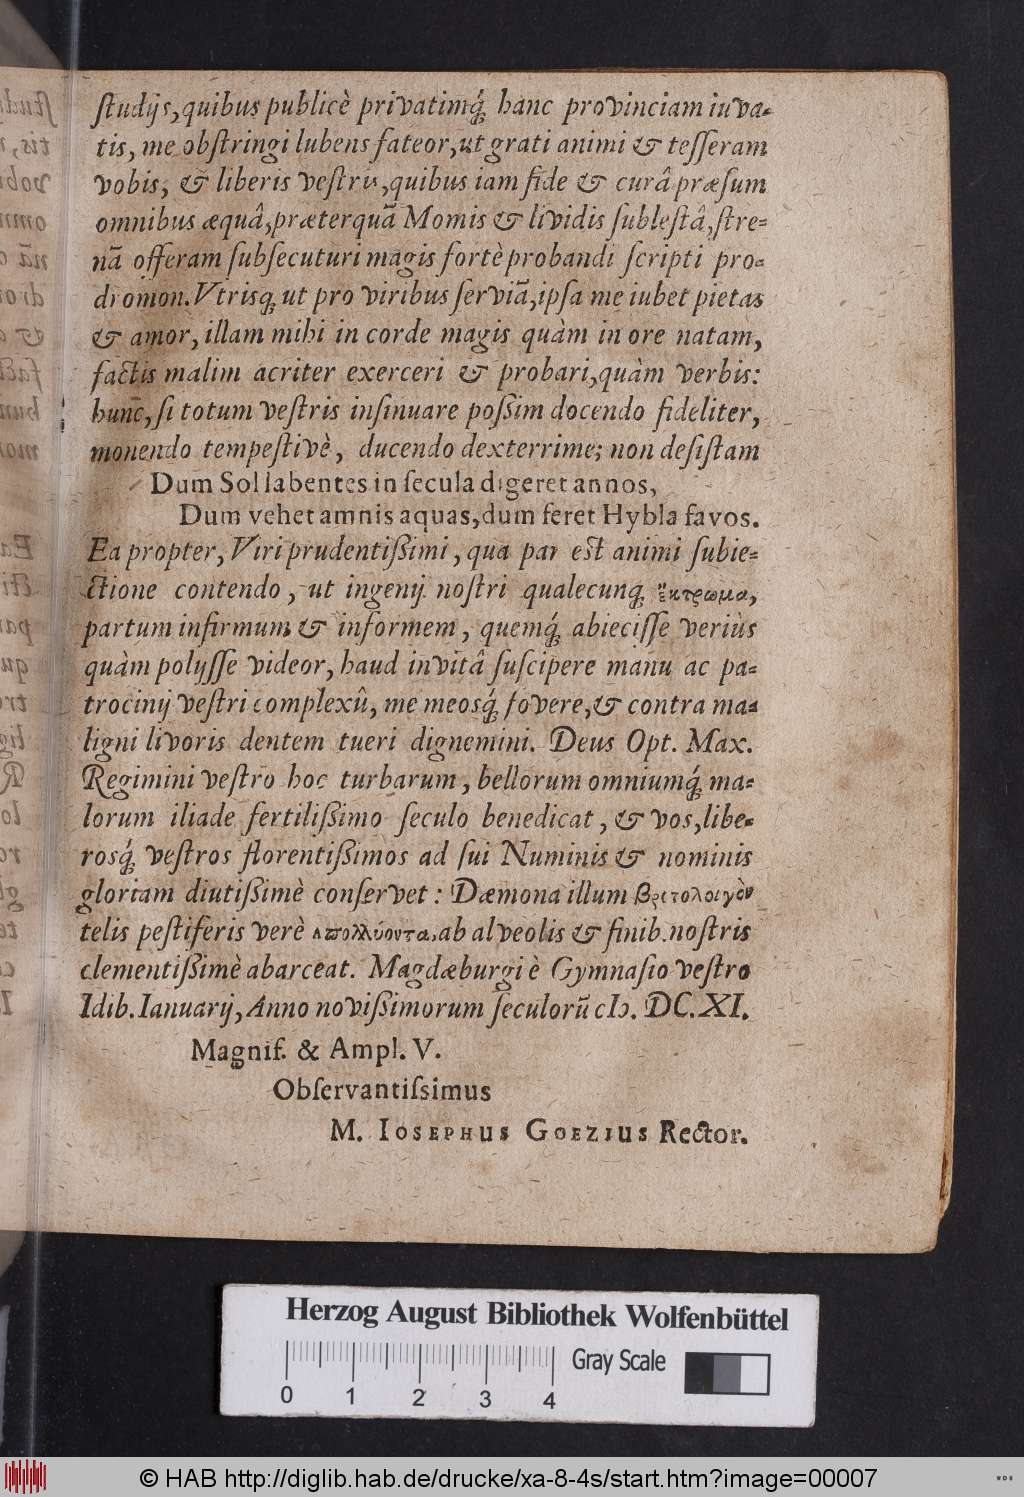 ſtudijs, quibus publicè privatimq́; hanc provinciam iuva-
tis, me obſtringi lubens fateor, ut grati animi & teſſeram
vobis, & liberis veſtris, quibus iam fide & curâ præſum
omnibus æquâ, præterquã Momis & lividis ſubleſtâ, ſtre-
nã offeram ſubſecuturi magis fortè probandi ſcripti pro-
dromon. Vtrisq; ut pro viribus ſerviã, ipſa me iubet pietas
& amor, illam mihi in corde magis quàm in ore natam,
factis malim acriter exerceri & probari, quàm verbis:
hunc, ſi totum veſtris inſinuare poſſim docendo fideliter,
monendo tempeſtivè, ducendo dexterrime; non deſiſtam
Dum Sol labentes in ſecula digeret annos,
Dum vehet amnis aquas, dum feret Hybla favos.
Ea propter, Viri prudentißimi, qua par est animi ſubie-
ctione contendo, ut ingenij noſtri qualecunq; ἔκτρωμα,
partum infirmum & informem, quemq́; abieciſſe veriùs
quàm polyſſe videor, haud invitâ ſuſcipere manu ac pa-
trocinij veſtri complexû, me meosq́; fovere, & contra ma-
ligni livoris dentem tueri dignemini. Deus Opt. Max.
Regimini veſtro hoc turbarum, bellorum omniumq́; ma-
lorum iliade fertilißimo ſeculo benedicat, & vos, libe-
rosq́; veſtros florentißimos ad ſui Numinis & nominis
gloriam diutißimè conſervet: Dæmona illum βροτολοιγὸν
telis peſtiferis verè ἀπολλύοντα, ab alveolis & finib. noſtris
clementißimè abarceat. Magdæburgi è Gymnaſio veſtro
Idib. Ianuarij, Anno novißimorum ſeculorũ cIↄ. DC. XI.
Magnif. & Ampl. V.
Obſervantiſsimus
M. IOSEPHUS GOEZIUS Rector.
Herzog August Bibliothek Wolfenbüttel
Gray Scale
0 1 2 3 4
© HAB http://diglib.hab.de/drucke/xa-8-4s/start.htm?image=00007